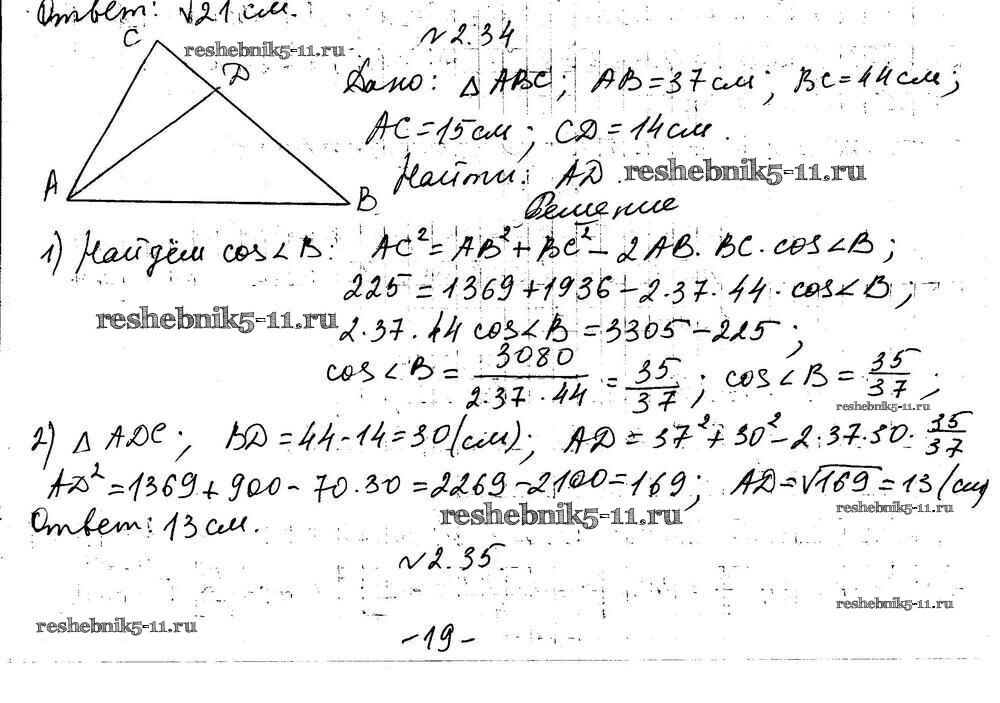 Ответ: √21 см.
№2.34
C
reshebnik5-11.ru
D
Дано: △ABC; AB=37см; BC=44см;
AC=15см; CD=14см.
A
B
Найти: AD.
reshebnik5-11.ru
Решение
1) Найдём cos∠B: AC²=AB²+BC²-2AB·BC·cos∠B;
225=1369+1936-2·37·44·cos∠B;
reshebnik5-11.ru
2·37·44 cos∠B=3305-225;
cos∠B = 3080/2·37·44 = 35/37; cos∠B = 35/37;
reshebnik5-11.ru
2) △ADC; BD=44-14=30(см); AD=37²+30²-2·37·30·35/37
AD²=1369+900-70·30=2269-2100=169; AD=√169=13(см)
reshebnik5-11.ru
Ответ: 13см.
reshebnik5-11.ru
№2.35.
reshebnik5-11.ru
reshebnik5-11.ru
-19-